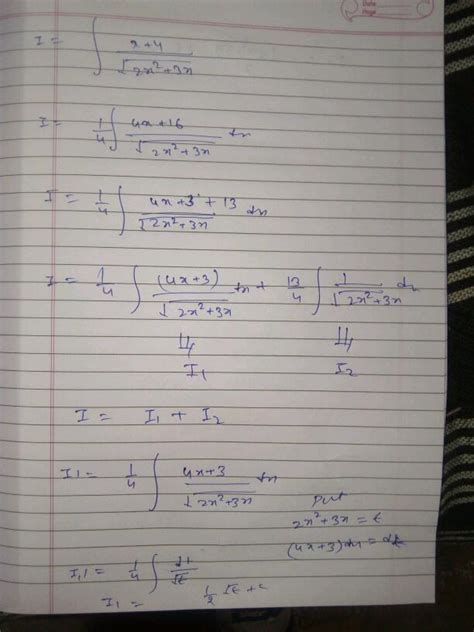 Date
Page
I = ∫ x+4 / √2x²+3x
I = 1/4 ∫ 4x+16 / √2x²+3x dx
I = 1/4 ∫ 4x+3+13 / √2x²+3x dx
I = 1/4 ∫ (4x+3) / √2x²+3x dx + 13/4 ∫ 1 / √2x²+3x dx
I₁ I₂
I = I₁ + I₂
I₁ = 1/4 ∫ 4x+3 / √2x²+3x dx
put
2x²+3x = t
(4x+3)dx = dt
I₁ = 1/4 ∫ dt / √t
I₁ = 1/2 √t + c